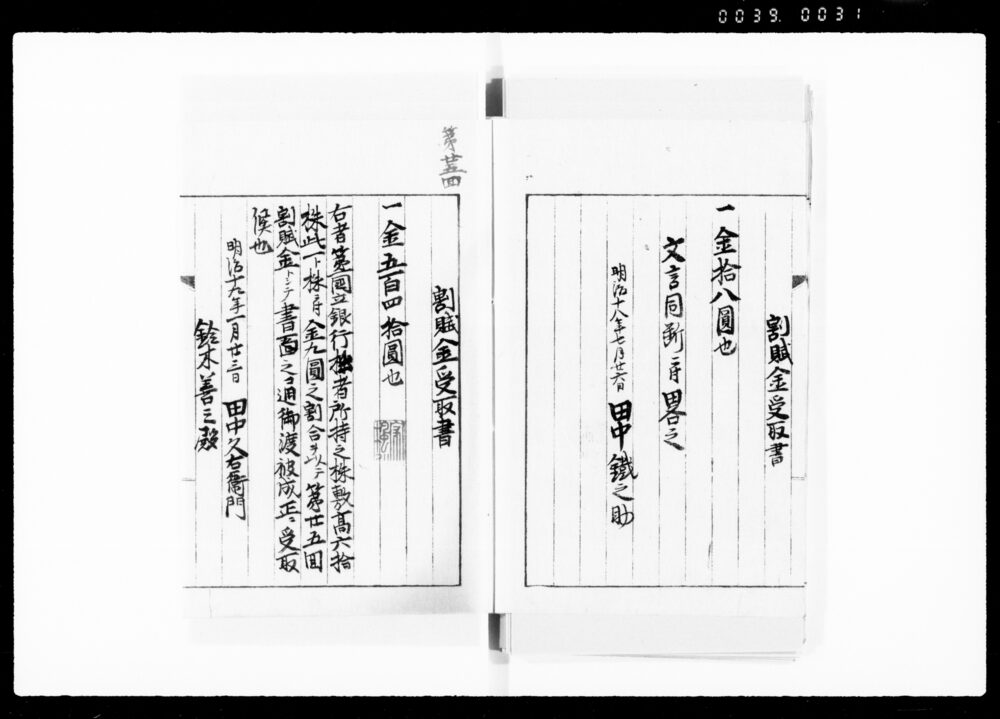 0039. 0031
割賦金受取書
一金拾八圓也
文言同断ニ付畧之
明治十八年七月廿六日 田中鐵之助
第廿五回
割賦金受取書
一金五百四拾圓也
右者第一國立銀行拙者所持之株敷高六拾
株此一ト株ニ付金九圓之割合ヲ以テ第廿五回
割賦金トシテ書面之通御渡被成正ニ受取
候也
明治十九年一月廿三日 田中久右衞門
鈴木善三殿